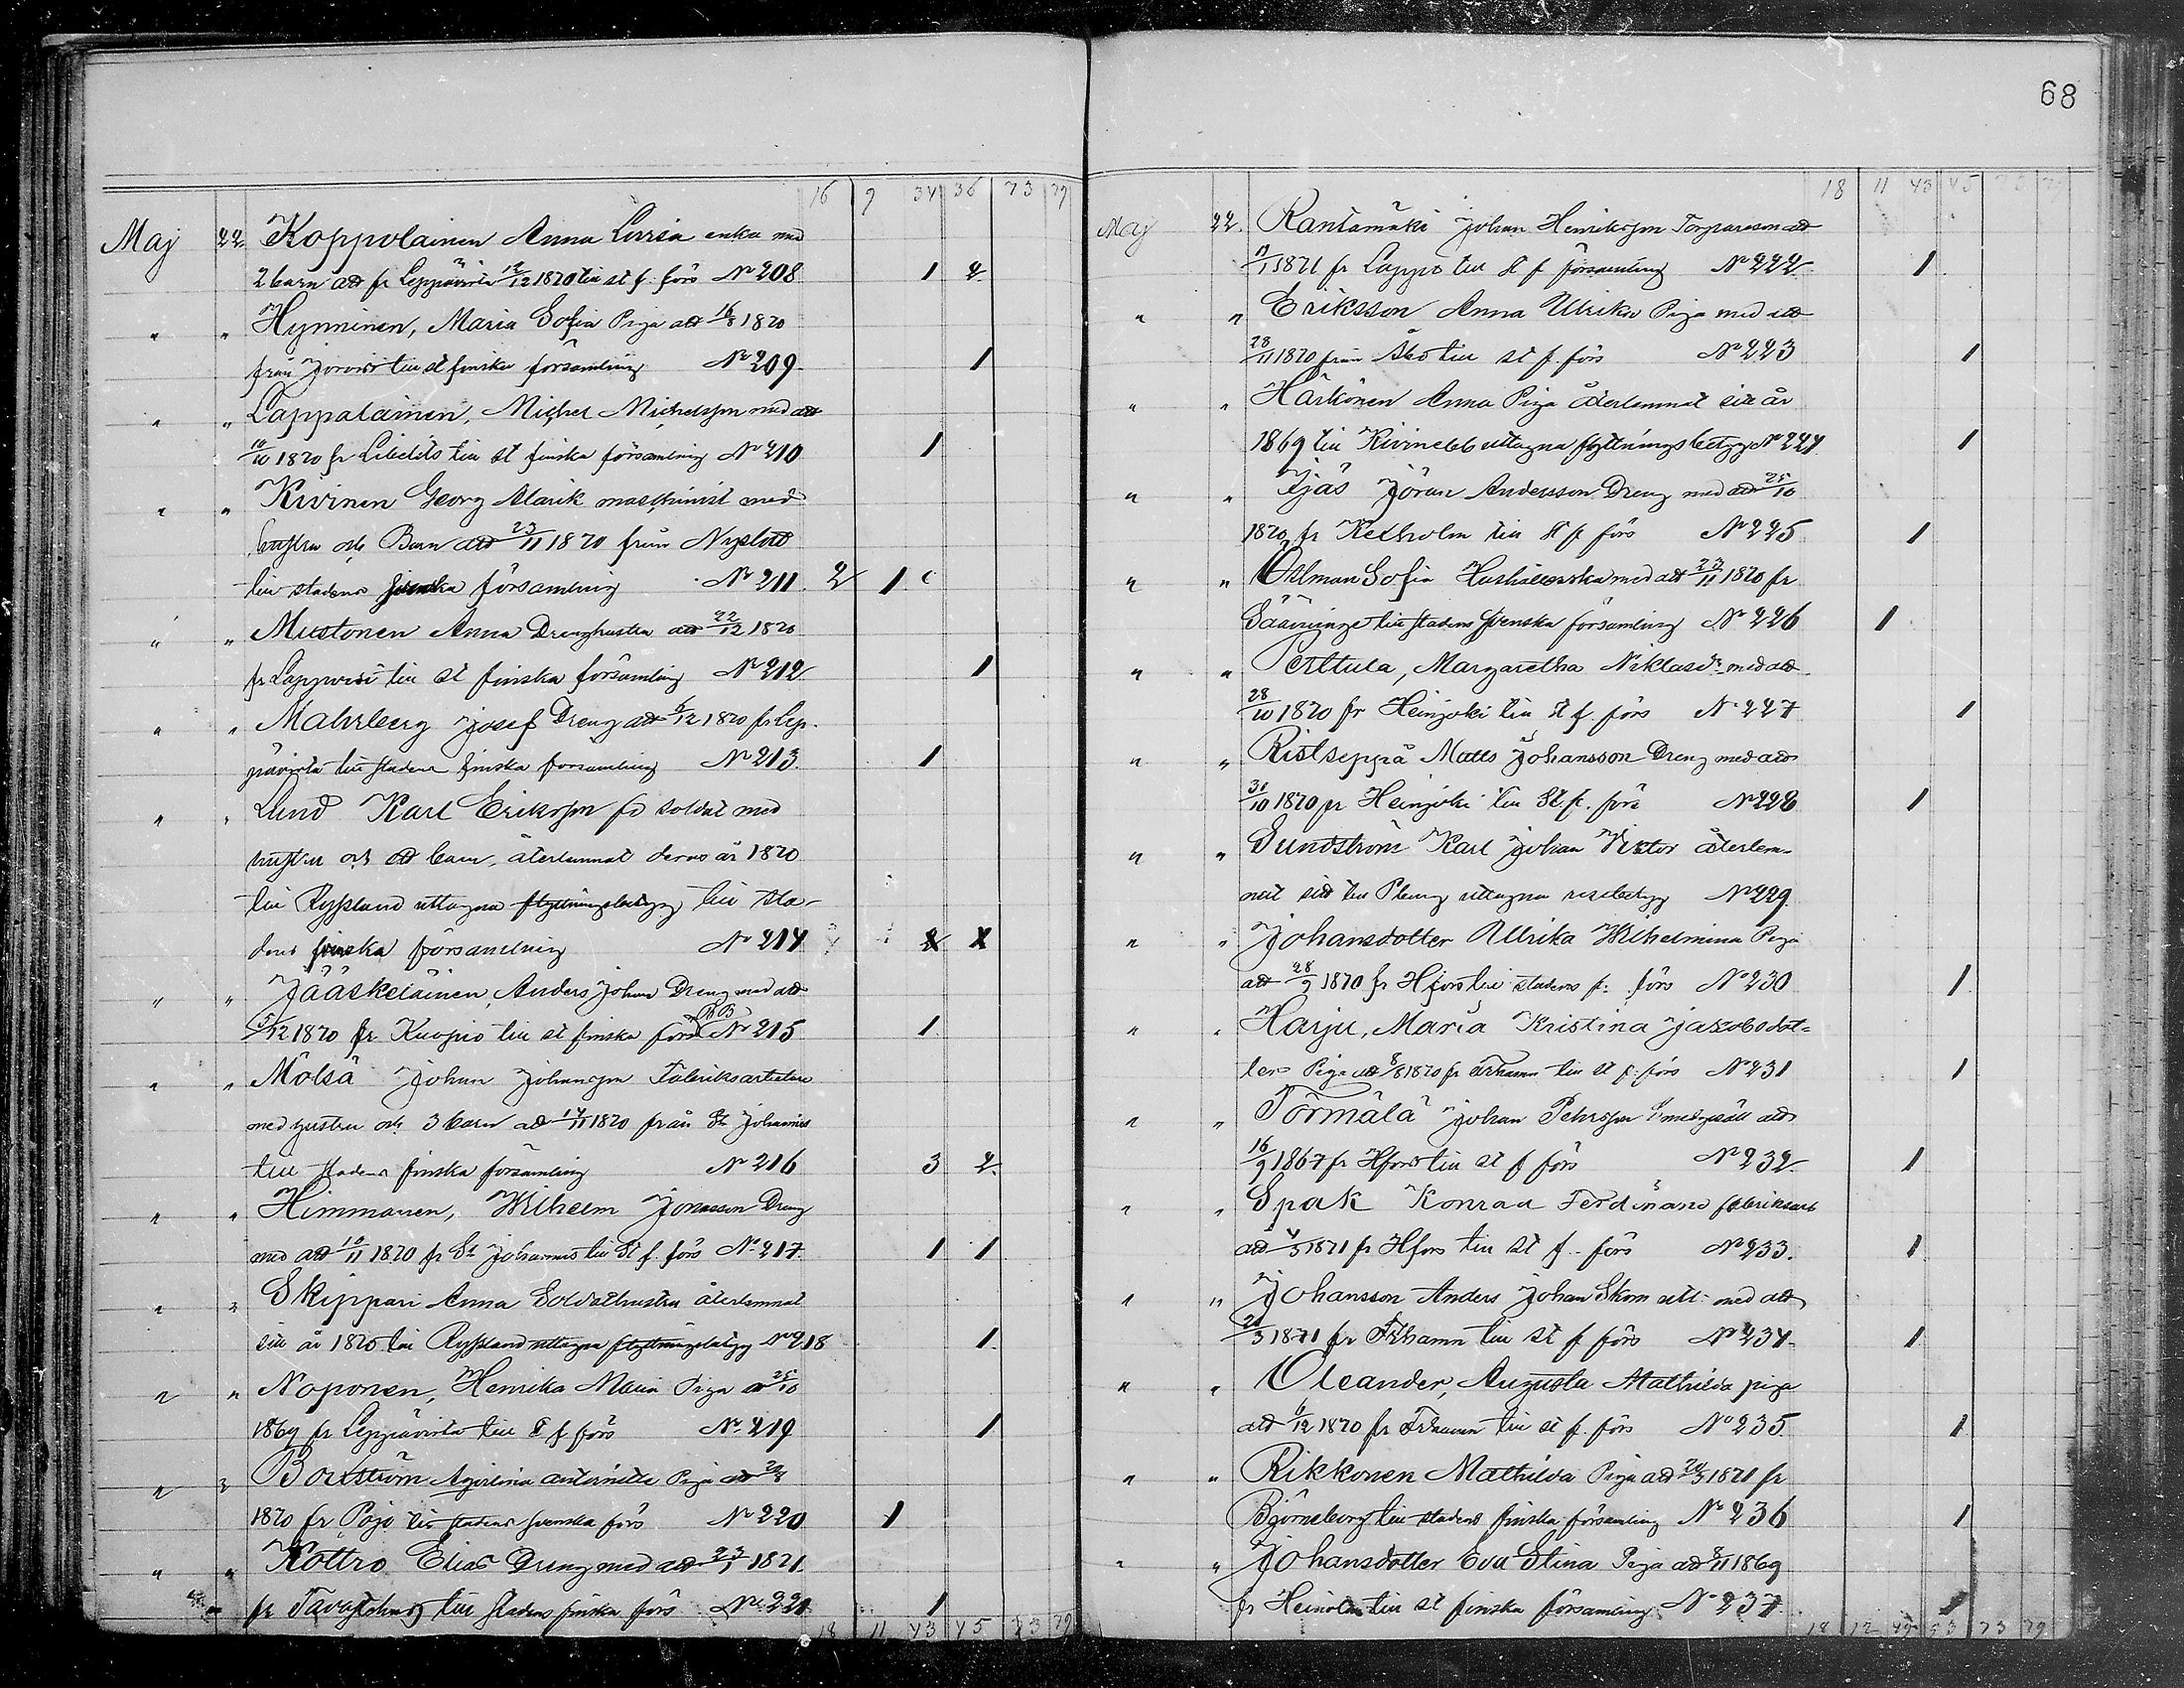 68
16 9 34 36 73 79
Maj 22. Koppolainen Anna Lovisa enka med
2 barn att fr Leppävirta 12/12 1870 till st f. förs No 208 1 2
" " Hynninen, Maria Sofia Piga att 16/8 1870
från Jorois till st finska församling No 209 1
" " Lappalainen, Michel Michelsson med att
10/10 1870 fr Libelits till st finska församling No 210 1
" " Kivinen Georg Alarik maschinist med
hustru och Barn att 23/11 1870 från Nyslott
till stadens församling No 211 2 1
" " Mustonen Anna Drenghustru att 22/12 1870
fr Lappvesi till st finska församling No 212 1
" " Mahrberg Josef Dreng att 6/12 1870 fr Lep-
pävirta till stadens finska församling No 213 1
" " Lund Karl Eriksson fd soldat med
hustru och barn, återlemnat deras år 1870
till Ryssland uttagna flyttningsbetyg till sta-
dens finska församling No 214
" " Jääskeläinen, Anders Johan Dreng med att
5/12 1870 fr Kuopio till st finska förs No 215 1
" " Mölsä Johan Johansson Fabriksarbetare
med hustru och 3 barn att 14/11 1870 från St Johannes
till stadens finska församling No 216 3 2.
" " Himmanen, Wilhelm Jonasson Dreng
med att 10/11 1870 fr St Johannes till St f. förs No 217 1 1
" " Skippari Anna Soldathustru återlemnat
sitt år 1870 till Ryssland uttagna flyttningsbetyg No 218 1
" " Noponen, Henrika Maria Piga att 25/10
1869 fr Leppävirta till st f förs No 219 1
" " Boxström antoinetta Piga att
1870 fr Pojo till stadens svenska förs No 220 1
" " Kottro Elias Dreng med att 23/1 1871
fr Tavastehus till stadens finska förs No 221 1
18 11 43 45 73 79
18 11 43 45 73 79
Maj 22. Rantamäki Johan Henriksson Torpareson att
1871 fr Lappo till st f församling No 222 1
" " Eriksson Anna Ulrika Piga med att
28/11 1870 från Åbo till st f. förs No 223 1
" " Härkönen Anna Piga återlemnat sitt år
1869 till Kivinebb uttagna flyttningsbetyg No 224 1
" " Jöran Andersson Dreng med att 25/10
1870 fr Kexholm till st f. förs No 225 1
" " Öhlman Sofia Hushållerska med att 23/11 1870 fr
Sääminge till stadens Svenska församling No 226 1
" " Perttula, Margaretha Niklasdr med att
28/10 1870 fr Heinjoki till st f. förs No 227 1
" " Ristseppä Matts Johansson Dreng med att
31/10 1870 fr Heinjoki till St. f. förs No 228 1
" " Sundström Karl Johan Viktor återlem-
nat sitt till Pburg uttagna resebetyg No 229
" " Johansdotter Ulrika Wilhelmina Piga
att 28/9 1870 fr Hfors till stadens f: förs No 230 1
" " Harju, Maria Kristina Jakobsdot-
ter Piga att 8/8 1870 fr Frhamn till st f. förs No 231 1
" " Törmälä Johan Pehrsson Smedgesäll att
16/9 1867 fr Hfors till st f förs No 232 1
" " Spak Konrad Ferdinand fabriksarb
att 4/3 1871 fr Hfors till st f.. förs No 233. 1
" " Johansson Anders Johan Skom med att
21/3 1871 fr Frhamn till st f förs No 234 1
" " Oleander, Augusta Mathilda piga
att 6/12 1870 fr Frhamn till st f. förs No 235 1
" " Rikkonen Mathilda Piga att 24/3 1871 fr
Björneborg till stadens finska församling No 236 1
" " Johansdotter Eva Stina Piga att 8/11 1869
fr Heinola till st finska församling No 237 1
18 12 49 53 73 79